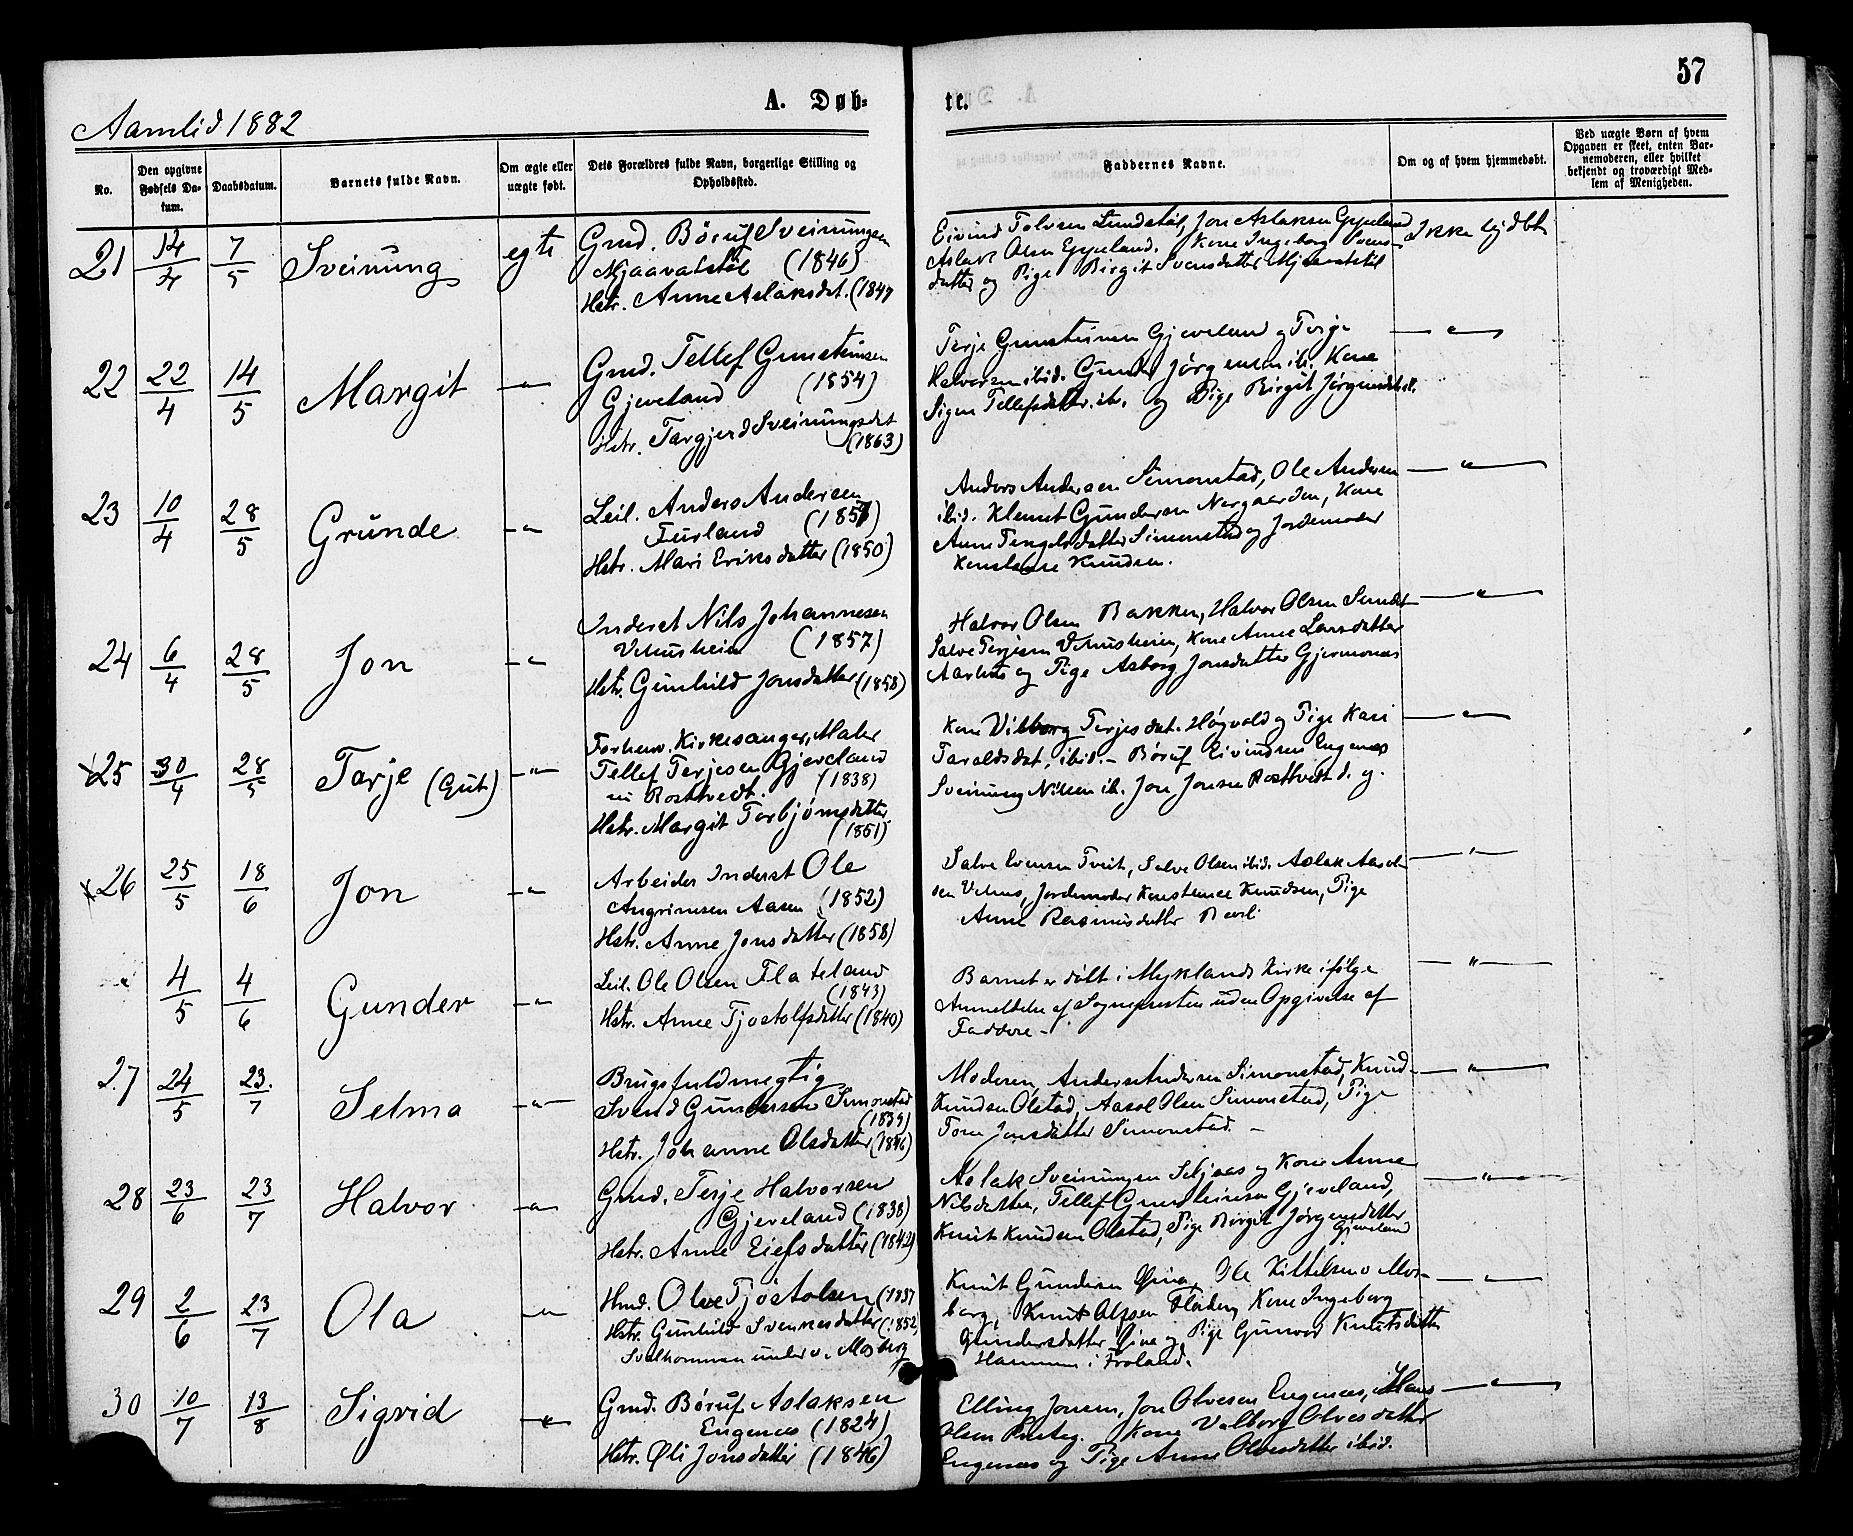 57
Aamlid 1882
A. Døb-
te.
No.
Den opgivne Fødsels Da-tum.
Daabsdatum.
Barnets fulde Navn.
Om ægte eller uægte født.
Dets Forældres fulde Navn, borgerlige Stilling og Opholdssted.
Faddernes Navne.
Om og af hvem hjemmedøbt.
Ved uægte Børn af hvem Opgaven er skeet, enten Bar-nemoderen, eller hvilket bekjendt og troværdigt Med-lem af Menigheden.
21 14/4 7/5 Sveinung egte
Gmd. Børuf Sveinungsen
Mjaavatstøl (1846)
Hstr. Anne Aslaksdat. (1847
Eivind Tolvsen Lundstøl, Jon Aslaksen Eppeland
Aslak Olsen Eppeland. Kone Ingeborg Svens-
datter og Pige Birgit Svensdatter Mjaavatstøl
Ikke hjdbt
22 22/4 14/5 Margit —"—
Gmd. Tellef Gunsteinsen
Gjeveland (1854)
Hstr. Targjerd Sveinungsdat
(1863)
Terje Gunsteinsen Gjeveland og Terje
Halvorsen ibid. Gunder Jørgensen ib. Kone
Signe Tellefsdatter ib. og Pige Birgit Jørgensdatt.
—"—
23 10/4 28/5 Grunde —"—
Leil. Anders Andersen
Furland (1857)
Hstr. Mari Eriksdatter (1850)
Anders Andersen Simonstad, Ole Andersen
ibid. Klemet Gundersen Nergaarden, Kone
Anne Tengelsdatter Simonstad og Jordemoder
Konstanse Knudsen.
—"—
24 6/4 28/5 Jon —"—
Inderst Nils Johannesen
Vehusheien (1857)
Hstr. Gunhild Jonsdatter (1858)
Halvor Olsen Bakken, Halvor Olsen
Salve Terjesen Vehusheien, Kone Anne Larsdatter
og Pige Asborg Jonsdatter Gjermones
—"—
25 30/4 28/5 Tarje (Gut) —"—
Forhenv. Kirkesanger, Maler
Tellef Terjesen Gjeveland
nu Rosttvedt. (1838)
Hstr. Margit Torbjørnsdatter
(1851)
Kone Vilborg Terjesdat. Høgvold og Pige Kari
Taraldsdat, ibid. – Børuf Eivindsen Engenæs
Sveinung Nilsen ib. Jon Jonsen Rosttvedt d. y.
—"—
26 25/5 18/6 Jon —"—
Arbeider Inderst Ole
Angrimsen Aasen (1852)
Hstr. Anne Jonsdatter (1858)
Salve Evensen Tveit, Salve Olsen ibid. Aslak Aasol-
sen Vehus, Jordemoder Konstanse Knudsen, Pige
Anne Rasmusdatter
—"—
4/5 4/6 Gunder —"—
Leil. Ole Olsen Flateland
(1843)
Hstr. Anne Tjostolfsdatter (1840)
Barnet er døbt i Myklands Kirke ifølge
Anmeldelse af Sognepresten uden Opgivelse af
Faddere –
—"—
27 24/5 23/7 Selma —"—
Brugsfuldmegtig
Svend Gundersen Simonstad
(1839)
Hstr. Johanne Olsdatter (1846)
Moderen, Anders Andersen Simonstad, Knud
Knudsen Olstad, Aasol Olsen Simonstad, Pige
Tone Jonsdatter Simonstad. –
—"—
28 23/6 23/7 Halvor —"—
Gmd. Terje Halvorsen
Gjeveland (1838)
Hstr. Anne Eiefsdatter (1842)
Aslak Sveinungsen Seljaas og Kone Anne
Nilsdatter, Tellef Gunsteinsen Gjeveland,
Knut Knudsen Olstad, Pige Birgit Jørgensdatter
Gjeveland
—"—
29 2/6 23/7 Ola —"—
Hmd. Olve Tjøstolsen (1837
Hstr. Gunhild Svenkesdatter (1852,
under Mosberg
Knut Gundersen Øina, Ole Kittelsen Mos-
berg, Knut Kone Ingeborg
Gundersdatter Øina og Pige Gunvor Knutsdatter
i Froland.
—"—
30 10/7 13/8 Sigrid —"—
Gmd. Børuf Aslaksen
Engenæs (1824)
Hstr. Øli Jonsdatter (1846)
Elling Jonsen, Jon Olvesen Engenæs, Hans
Olsen Kone Valborg Olvesdatter
Engenæs og Pige Anne Olvesdatter ibid.
—"—